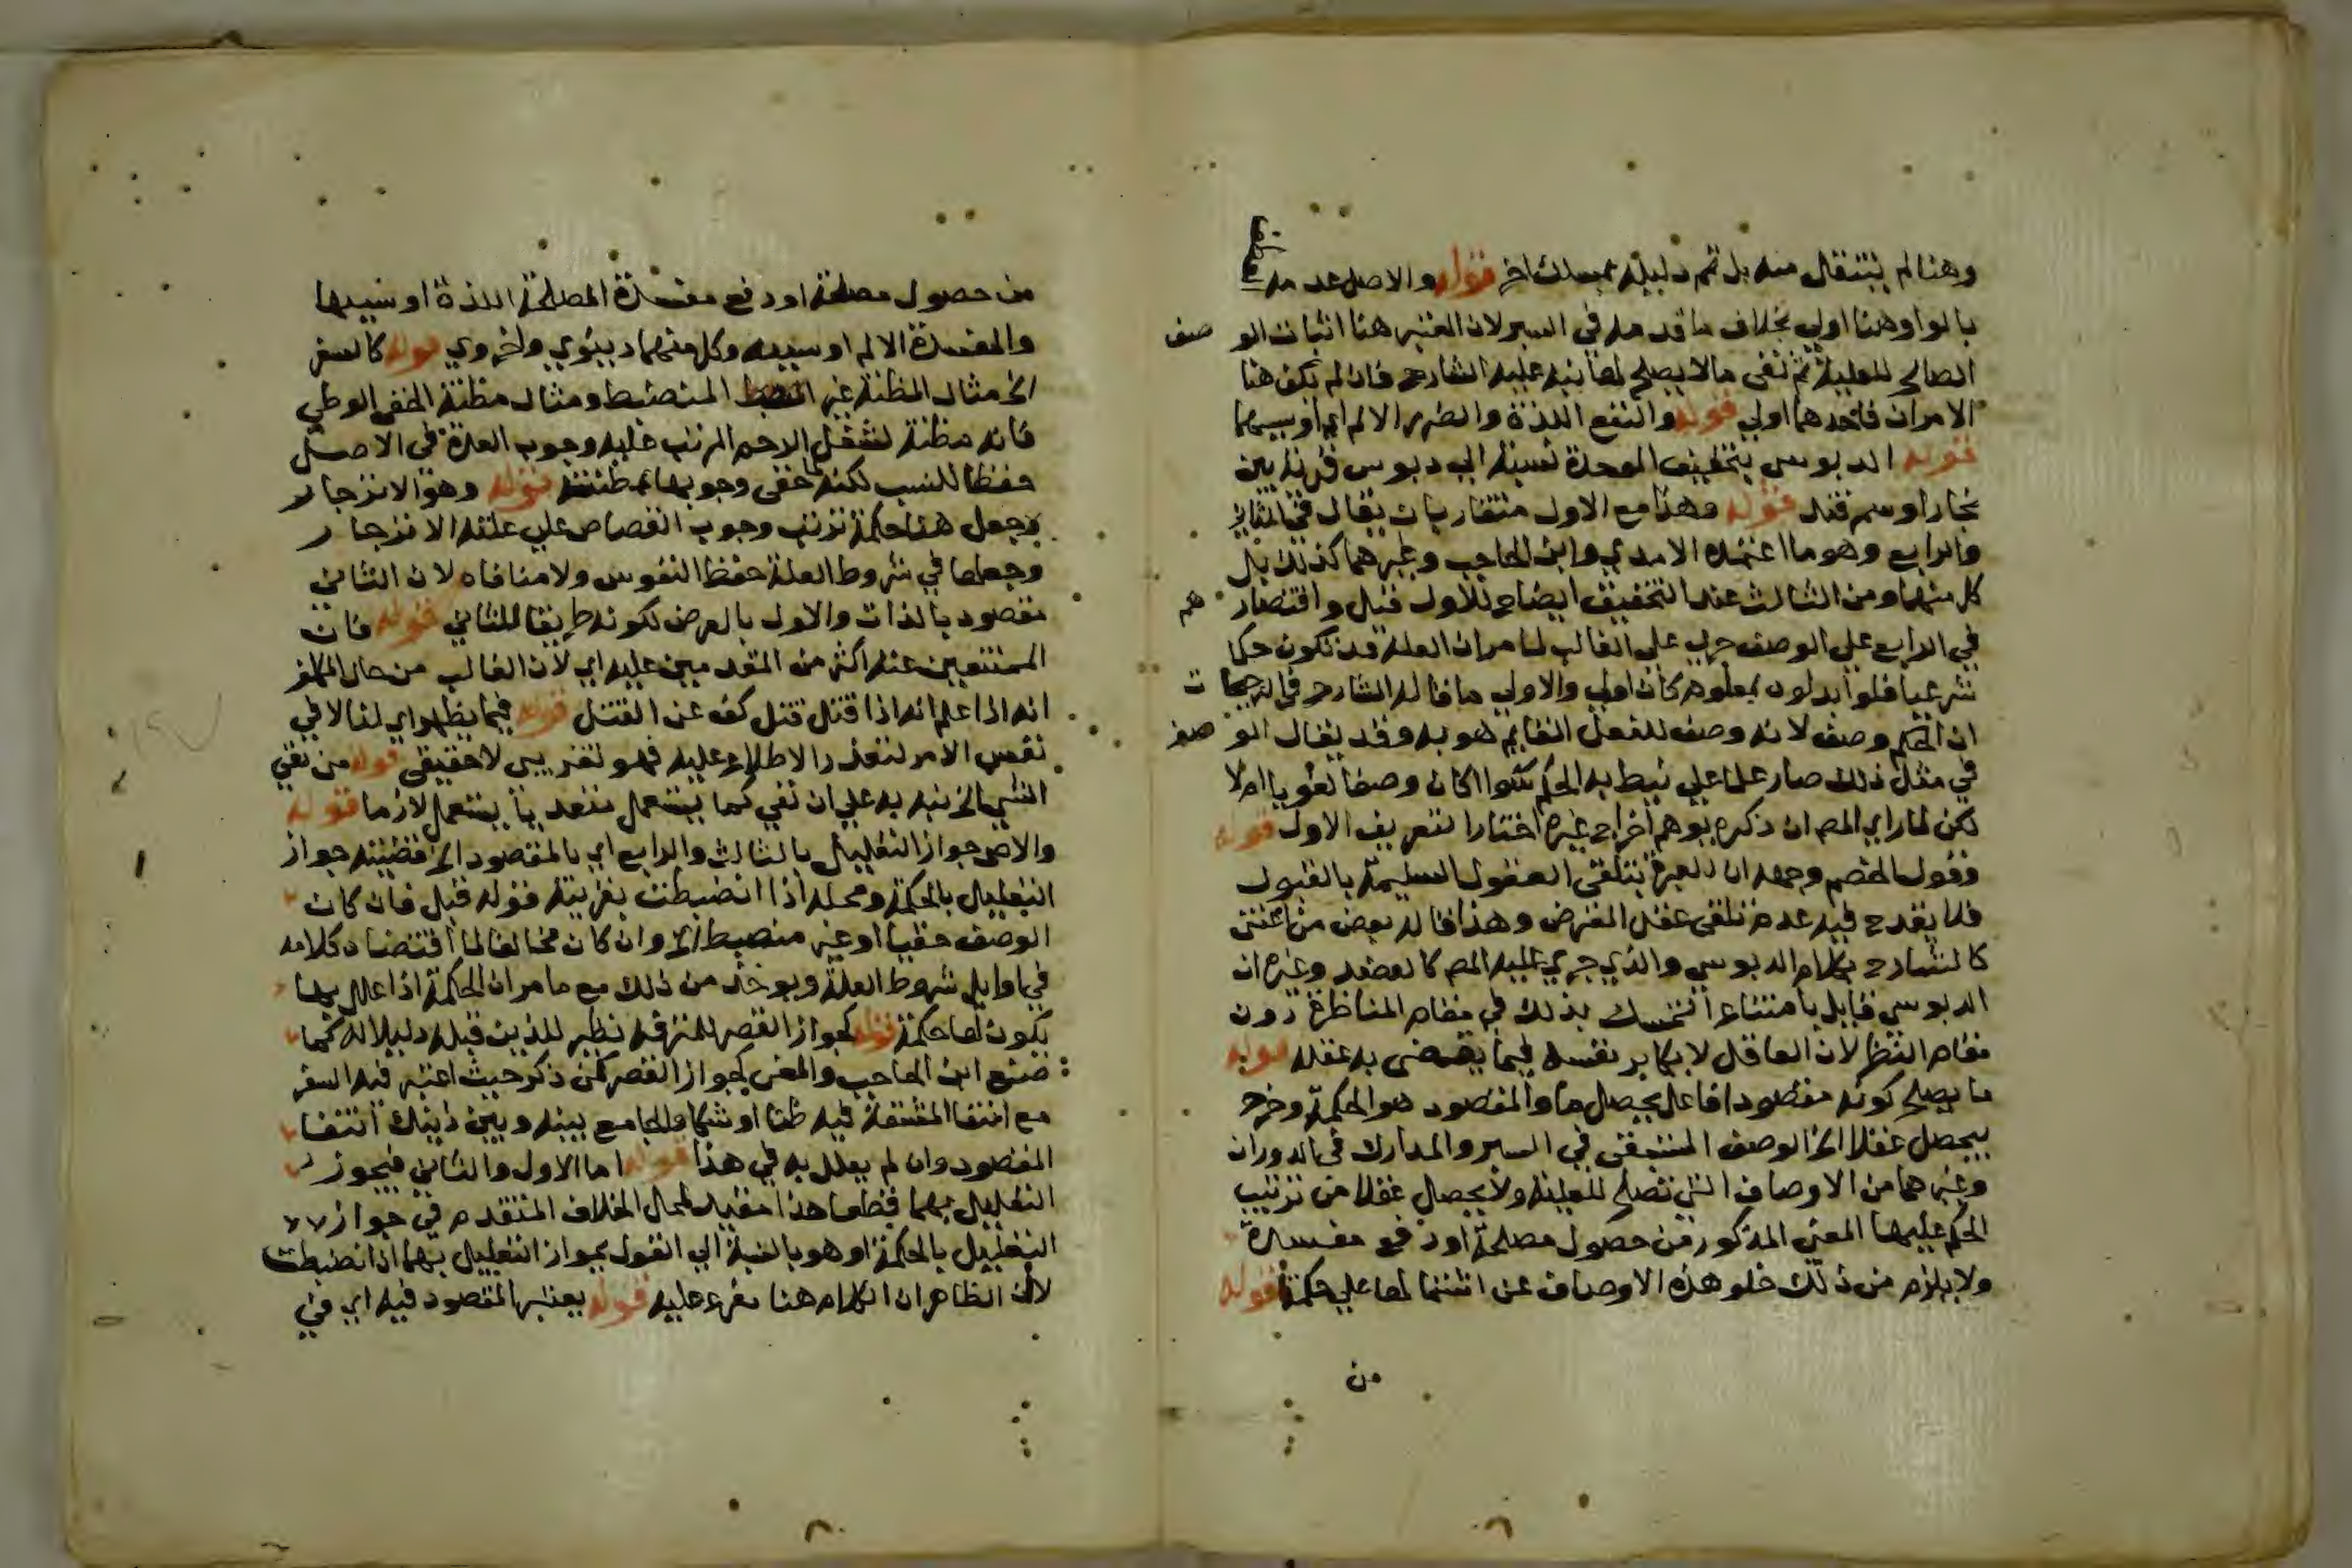 وهنا لم ينتقل منه بل تمم دليله بمسلك اخر قوله والاصل عدمه
بالواو هنا اولى بخلاف ما قدمه في السبر لان المعتبر هنا اثبات الوصف
الصالح للعلية ثم نفى ما لا يصلح لها نبه عليه الشارح فان لم تكن هنا
الامران فاحدهما اولى قوله والنفع اللذة والضرر الالم اي او سببهما
قوله الدبوسي بتخفيف الموحدة نسبة الي دبوس قرية بين
بخارا وسمرقند قوله وهذا مع الاول متقاربان يقال في الثاني
والرابع وهو ما اعتمده الامدي وابن الحاجب وغيرهما كذلك بل
كل منهما ومن الثالث عند التحقيق ايضاح للاول قيل واقتصارهم
في الرابع علي الوصف جري علي الغالب لما مر ان العلة قد تكون حكما
شرعيا فلو ابدلوه بمعلوم كان اولي والاولي ما قاله الشارح في الترجيحات
ان الحكم وصف لانه وصف للفعل القايم هو به وقد يقال الوصف
في مثل ذلك صار علما علي نيط به الحكم سوا كان وصفا لغويا ام لا
لكن لما راي المص ان ذكره يوهم اخراج غيره اختارا لتعريف الاول قوله
وقول الخصم وجهه ان العبرة بتلقي العقول السليمة بالقبول
فلا يقدح فيه عدم تلقي عقل المعترض وهذا قاله بعض من اعتنى
كالشارح بكلام الدبوسي والذي جري عليه المص كالعضد وغيره ان
الدبوسي قايل بامتناع التمسك بذلك في مقام المناظرة دون
مقام النظر لان العاقل لا يكابر نفسه فيما يقضى به عقله قوله
ما يصلح كونه مقصودا فاعل يحصل ما والمقصود هو الحكمة وخرج
بيحصل عقلا الخ الوصف المستبقى في السبر والمدارك في الدوران
وغيرهما من الاوصاف التي تصلح للعلية ولا يحصل عقلا من ترتيب
الحكم عليها المعنى المذكور من حصول مصلحة او دفع مفسدة
ولا يلزم من ذلك خلو هذه الاوصاف عن اشتمالها علي حكمة قوله
من
من حصول مصلحة او دفع مفسدة المصلحة اللذة او سببها
والمفسدة الالم او سببه وكل منهما دنيوي واخروي قوله كالسفر
الخ مثال المظنة غير المنضبط ومثال مظنة الخفي الوطي
فانه مظنة لشغل الرحم المرتب عليه وجوب العدة في الاصل
حفظا للنسب لكنه لما خفى وجوبها بمظنته قوله وهو الانزجار
وجعل هنا حكمة ترتب وجوب القصاص علي علته الانزجار
وجعلها في شروط العلة حفظ النفوس ولا منافاه لان الثاني
مقصود بالذات والاول بالعرض لكونه طريقا للثاني قوله فان
الممتنعين عنه اكثر من المقدمين عليه اي لان الغالب من حال المكلف
انه اذا علم انه اذا قتل قتل كف عن القتل قوله فيما يظهر اي لنا لا في
نفس الامر لتعذر الاطلاع عليه فهو تقريبي لا حقيقى قوله من نفي
الشي الخ نبه به علي ان نفي كما يستعمل متعديا يستعمل لازما قوله
والاصح جواز التعليل بالثالث والرابع اي بالمقصود الخ قضيته جواز
التعليل بالحكمة ومحله اذا انضبطت بقرينة قوله قبل فان كان
الوصف خفيا او غير منضبط الخ وان كان مخالفا لما اقتضاه كلامه
في اوايل شروط العلة ويوخذ من ذلك مع ما مر ان الحكمة اذا علل بها
يكون لها حكمة قوله كجواز القصر للمترفه نظير للذين قبله دليلا له كما
صنع ابن الحاجب والمعنى كجواز القصر لمن ذكر حيث اعتبر فيه السفر
مع انتفا المشقة فيه ظنا او شكا والجامع بينه وبين ذينك انتفا
المقصود وان لم يعلل به في هذا قوله اما الاول والثاني فيجوز
التعليل بهما قطعا هذا مقيد لمحل الخلاف المتقدم في جواز
التعليل بالحكمة او هو بالنسبة الي القول بجواز التعليل بها اذا انضبطت
لان الظاهر ان الكلام هنا مفرع عليه قوله يعتبر المقصود فيه اي في